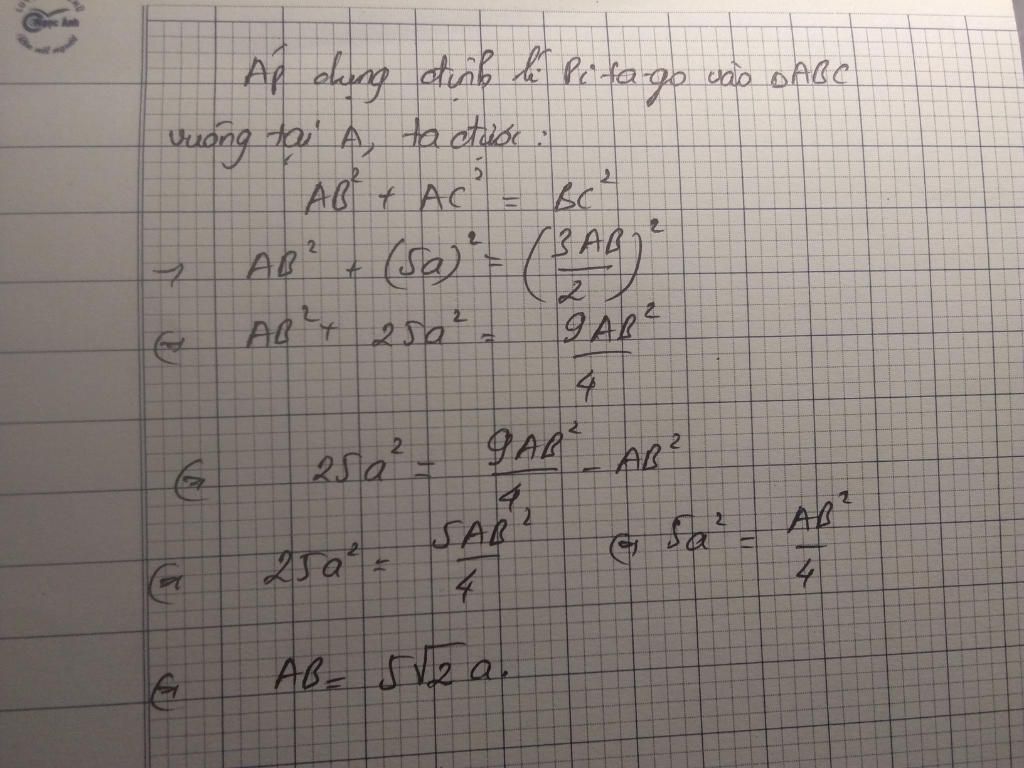 Ngọc Ánh
Áp dụng định lí Pi-ta-go vào ΔABC
vuông tại A, ta được:
AB² + AC² = BC²
→ AB² + (5a)² = (3AB/2)²
⇔ AB² + 25a² = 9AB²/4
⇔ 25a² = 9AB²/4 - AB²
⇔ 25a² = 5AB²/4 ⇔ 5a² = AB²/4
⇔ AB = 5√2 a.